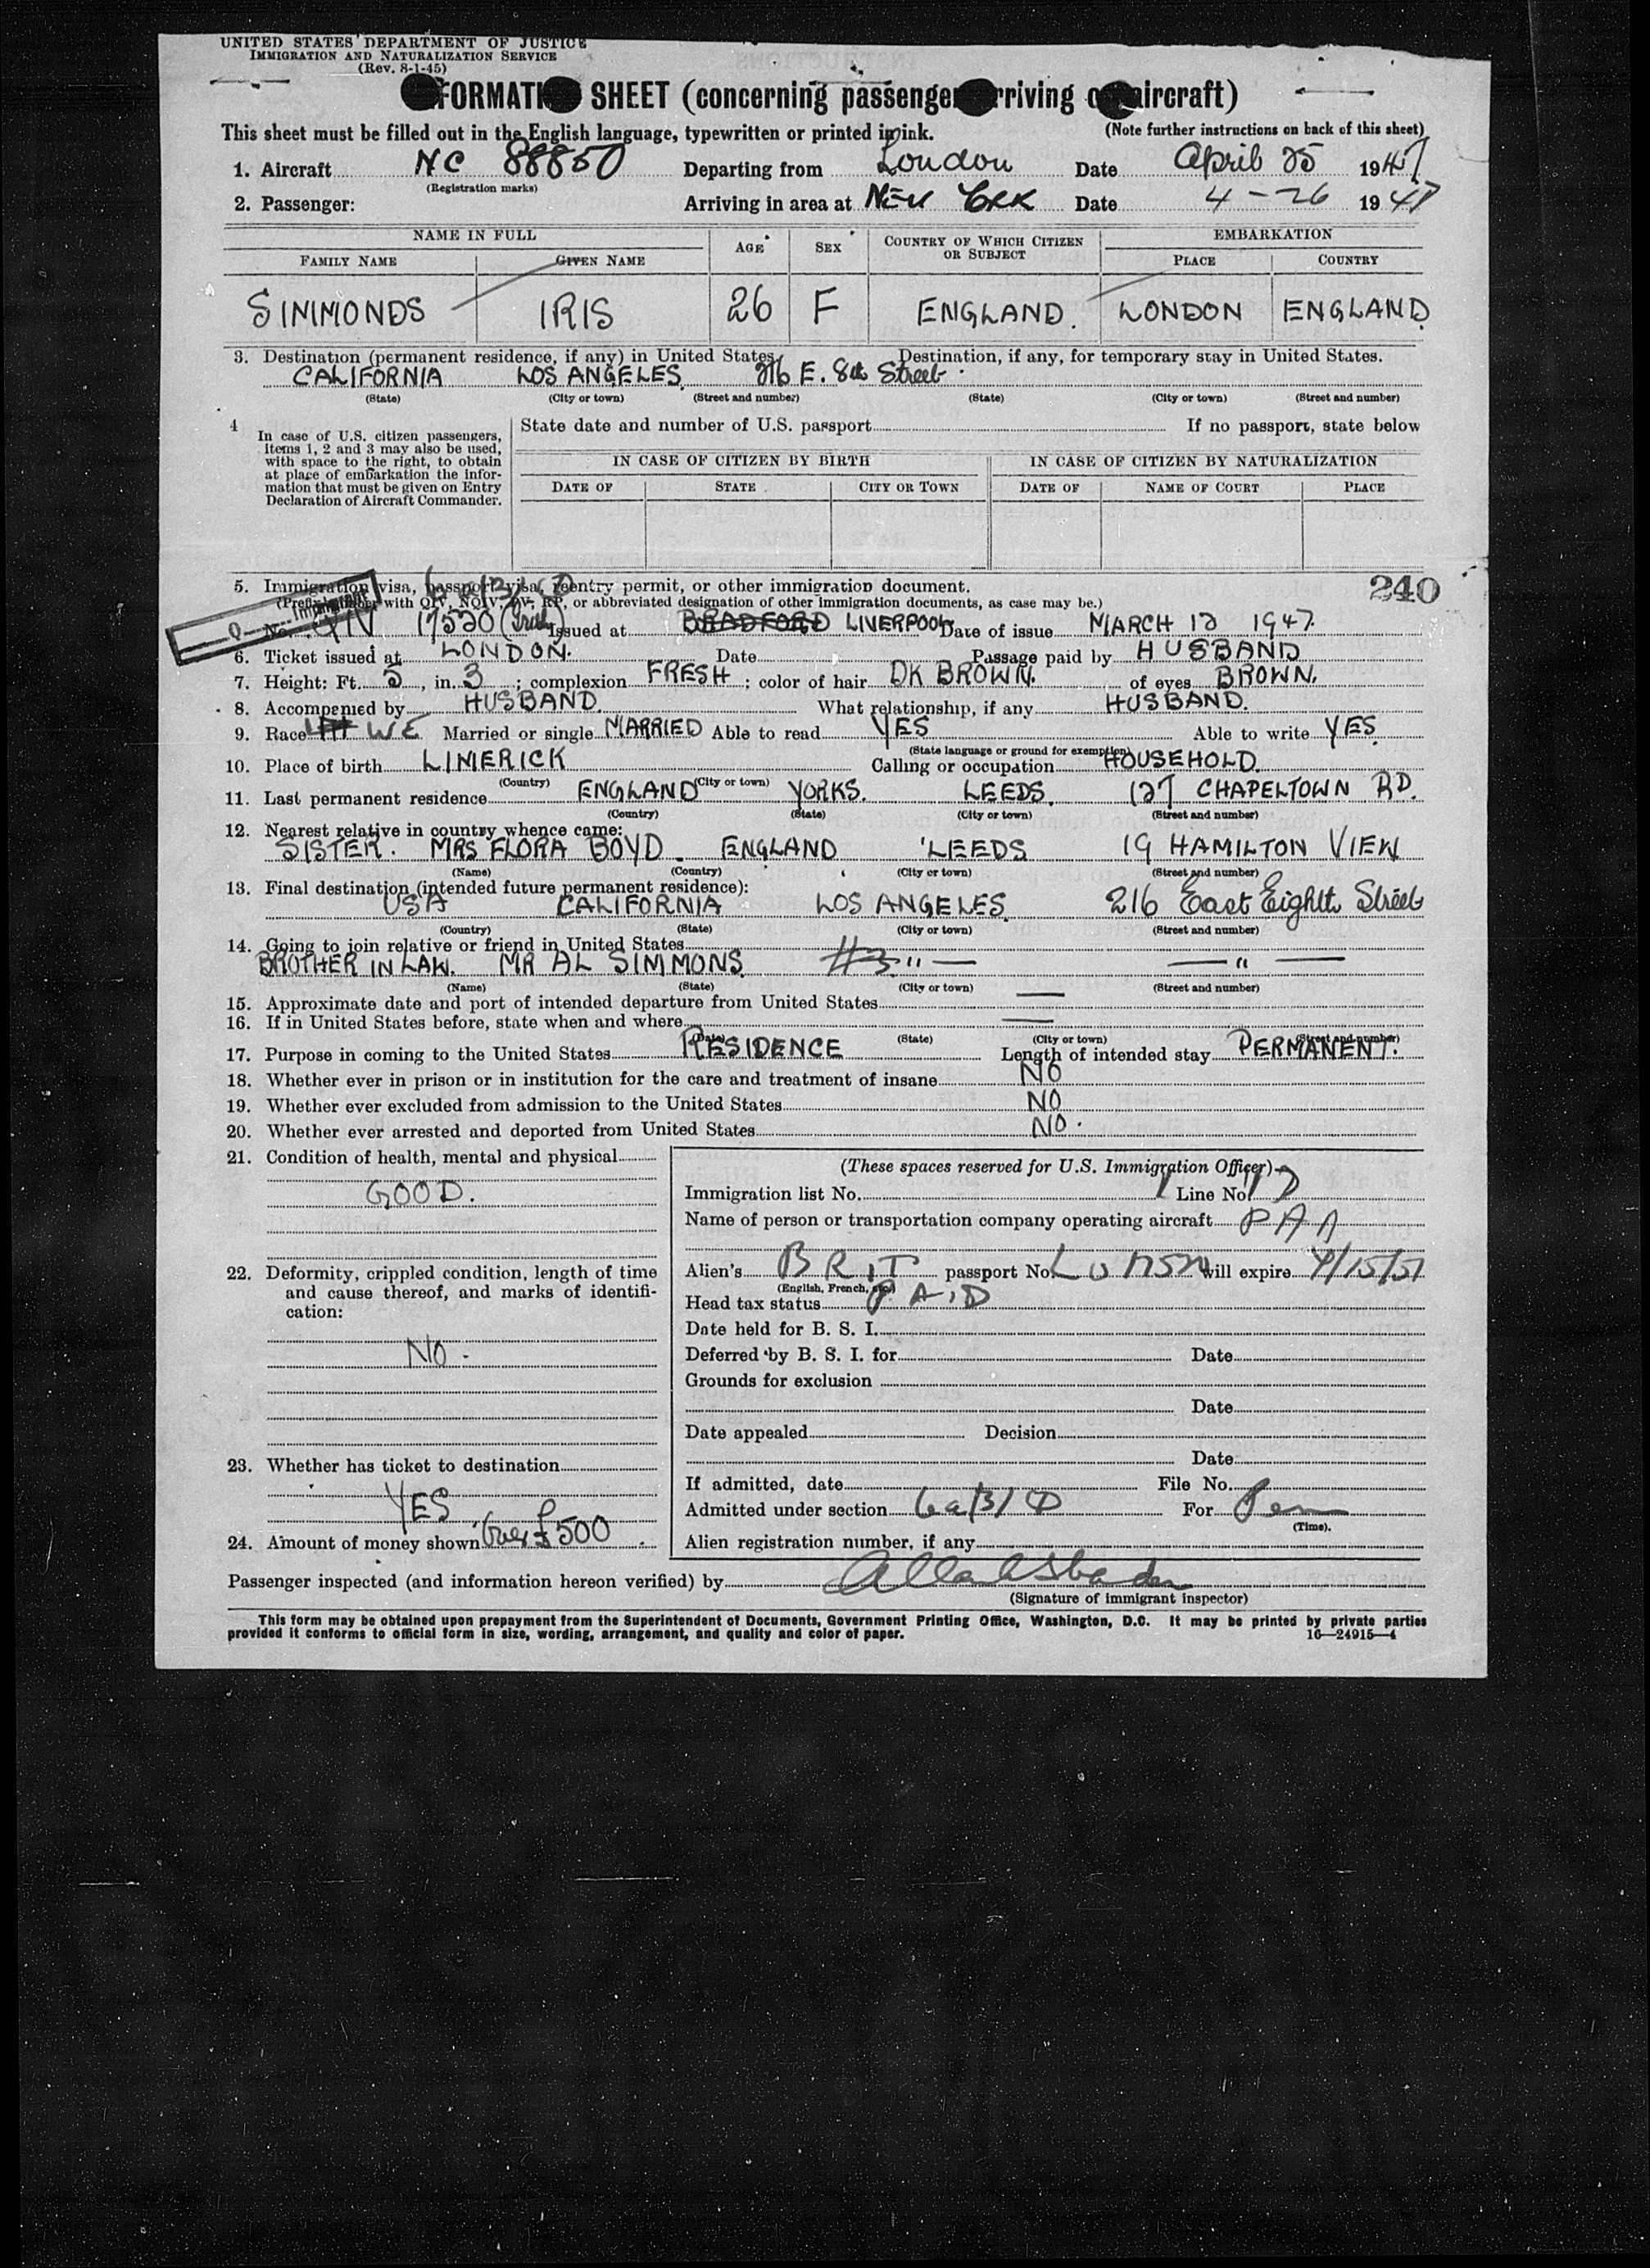 UNITED STATES DEPARTMENT OF JUSTICE
IMMIGRATION AND NATURALIZATION SERVICE
(Rev. 8-1-45)
SHEET (concerning passenger arriving aircraft)
This sheet must be filled out in the English language, typewritten or printed in ink. (Note further instructions on back of this sheet)
1. Aircraft NC 88850 Departing from London Date April 25 1947
(Registration marks)
2. Passenger: Arriving in area at NEW YORK Date 4-26 1947
NAME IN FULL AGE SEX COUNTRY OF WHICH CITIZEN OR SUBJECT EMBARKATION
FAMILY NAME GIVEN NAME PLACE COUNTRY
SIMMONDS IRIS 26 F ENGLAND. LONDON ENGLAND
3. Destination (permanent residence, if any) in United States. Destination, if any, for temporary stay in United States.
CALIFORNIA LOS ANGELES 216 E. 8th Street
(State) (City or town) (Street and number) (State) (City or town) (Street and number)
4 State date and number of U.S. passport If no passport, state below
In case of U.S. citizen passengers,
items 1, 2 and 3 may also be used,
with space to the right, to obtain
at place of embarkation the infor-
mation that must be given on Entry
Declaration of Aircraft Commander.
IN CASE OF CITIZEN BY BIRTH IN CASE OF CITIZEN BY NATURALIZATION
DATE OF STATE CITY OR TOWN DATE OF NAME OF COURT PLACE
5. Immigration visa, passport visa, reentry permit, or other immigration document. 240
(Prefix number with QIV, NQIV, PV, RP, or abbreviated designation of other immigration documents, as case may be.)
No. 17520 (Irish) Issued at BRADFORD LIVERPOOL Date of issue MARCH 12 1947
6. Ticket issued at LONDON. Date Passage paid by HUSBAND
7. Height: Ft. 5, in. 3; complexion FRESH; color of hair DK BROWN. of eyes BROWN.
8. Accompanied by HUSBAND. What relationship, if any HUSBAND.
9. Race Married or single MARRIED Able to read YES Able to write YES
(State language or ground for exemption)
10. Place of birth LIMERICK Calling or occupation HOUSEHOLD.
(Country) (City or town)
11. Last permanent residence ENGLAND YORKS. LEEDS. 127 CHAPELTOWN RD.
(Country) (State) (City or town) (Street and number)
12. Nearest relative in country whence came:
SISTER. MRS FLORA BOYD. ENGLAND LEEDS 19 HAMILTON VIEW
(Name) (Country) (City or town) (Street and number)
13. Final destination (intended future permanent residence):
USA CALIFORNIA LOS ANGELES. 216 East Eighth Street
(Country) (State) (City or town) (Street and number)
14. Going to join relative or friend in United States
BROTHER IN LAW. MR AL SIMMONS " — — " —
(Name) (State) (City or town) (Street and number)
15. Approximate date and port of intended departure from United States —
16. If in United States before, state when and where —
(Date) (State) (City or town) (Street and number)
17. Purpose in coming to the United States RESIDENCE Length of intended stay PERMANENT.
18. Whether ever in prison or in institution for the care and treatment of insane NO
19. Whether ever excluded from admission to the United States NO
20. Whether ever arrested and deported from United States NO.
21. Condition of health, mental and physical
GOOD.
22. Deformity, crippled condition, length of time
and cause thereof, and marks of identifi-
cation:
NO.
23. Whether has ticket to destination
YES
24. Amount of money shown Over £500
(These spaces reserved for U.S. Immigration Officer)
Immigration list No. Line No.
Name of person or transportation company operating aircraft PAA
Alien's BRIT passport No. will expire 4/15/51
(English, French, etc.)
Head tax status PAID
Date held for B. S. I.
Deferred by B. S. I. for Date
Grounds for exclusion
Date
Date appealed Decision
Date
If admitted, date File No.
Admitted under section For Perm
(Time).
Alien registration number, if any
Passenger inspected (and information hereon verified) by
(Signature of immigrant inspector)
This form may be obtained upon prepayment from the Superintendent of Documents, Government Printing Office, Washington, D.C. It may be printed by private parties
provided it conforms to official form in size, wording, arrangement, and quality and color of paper. 16—24915—4